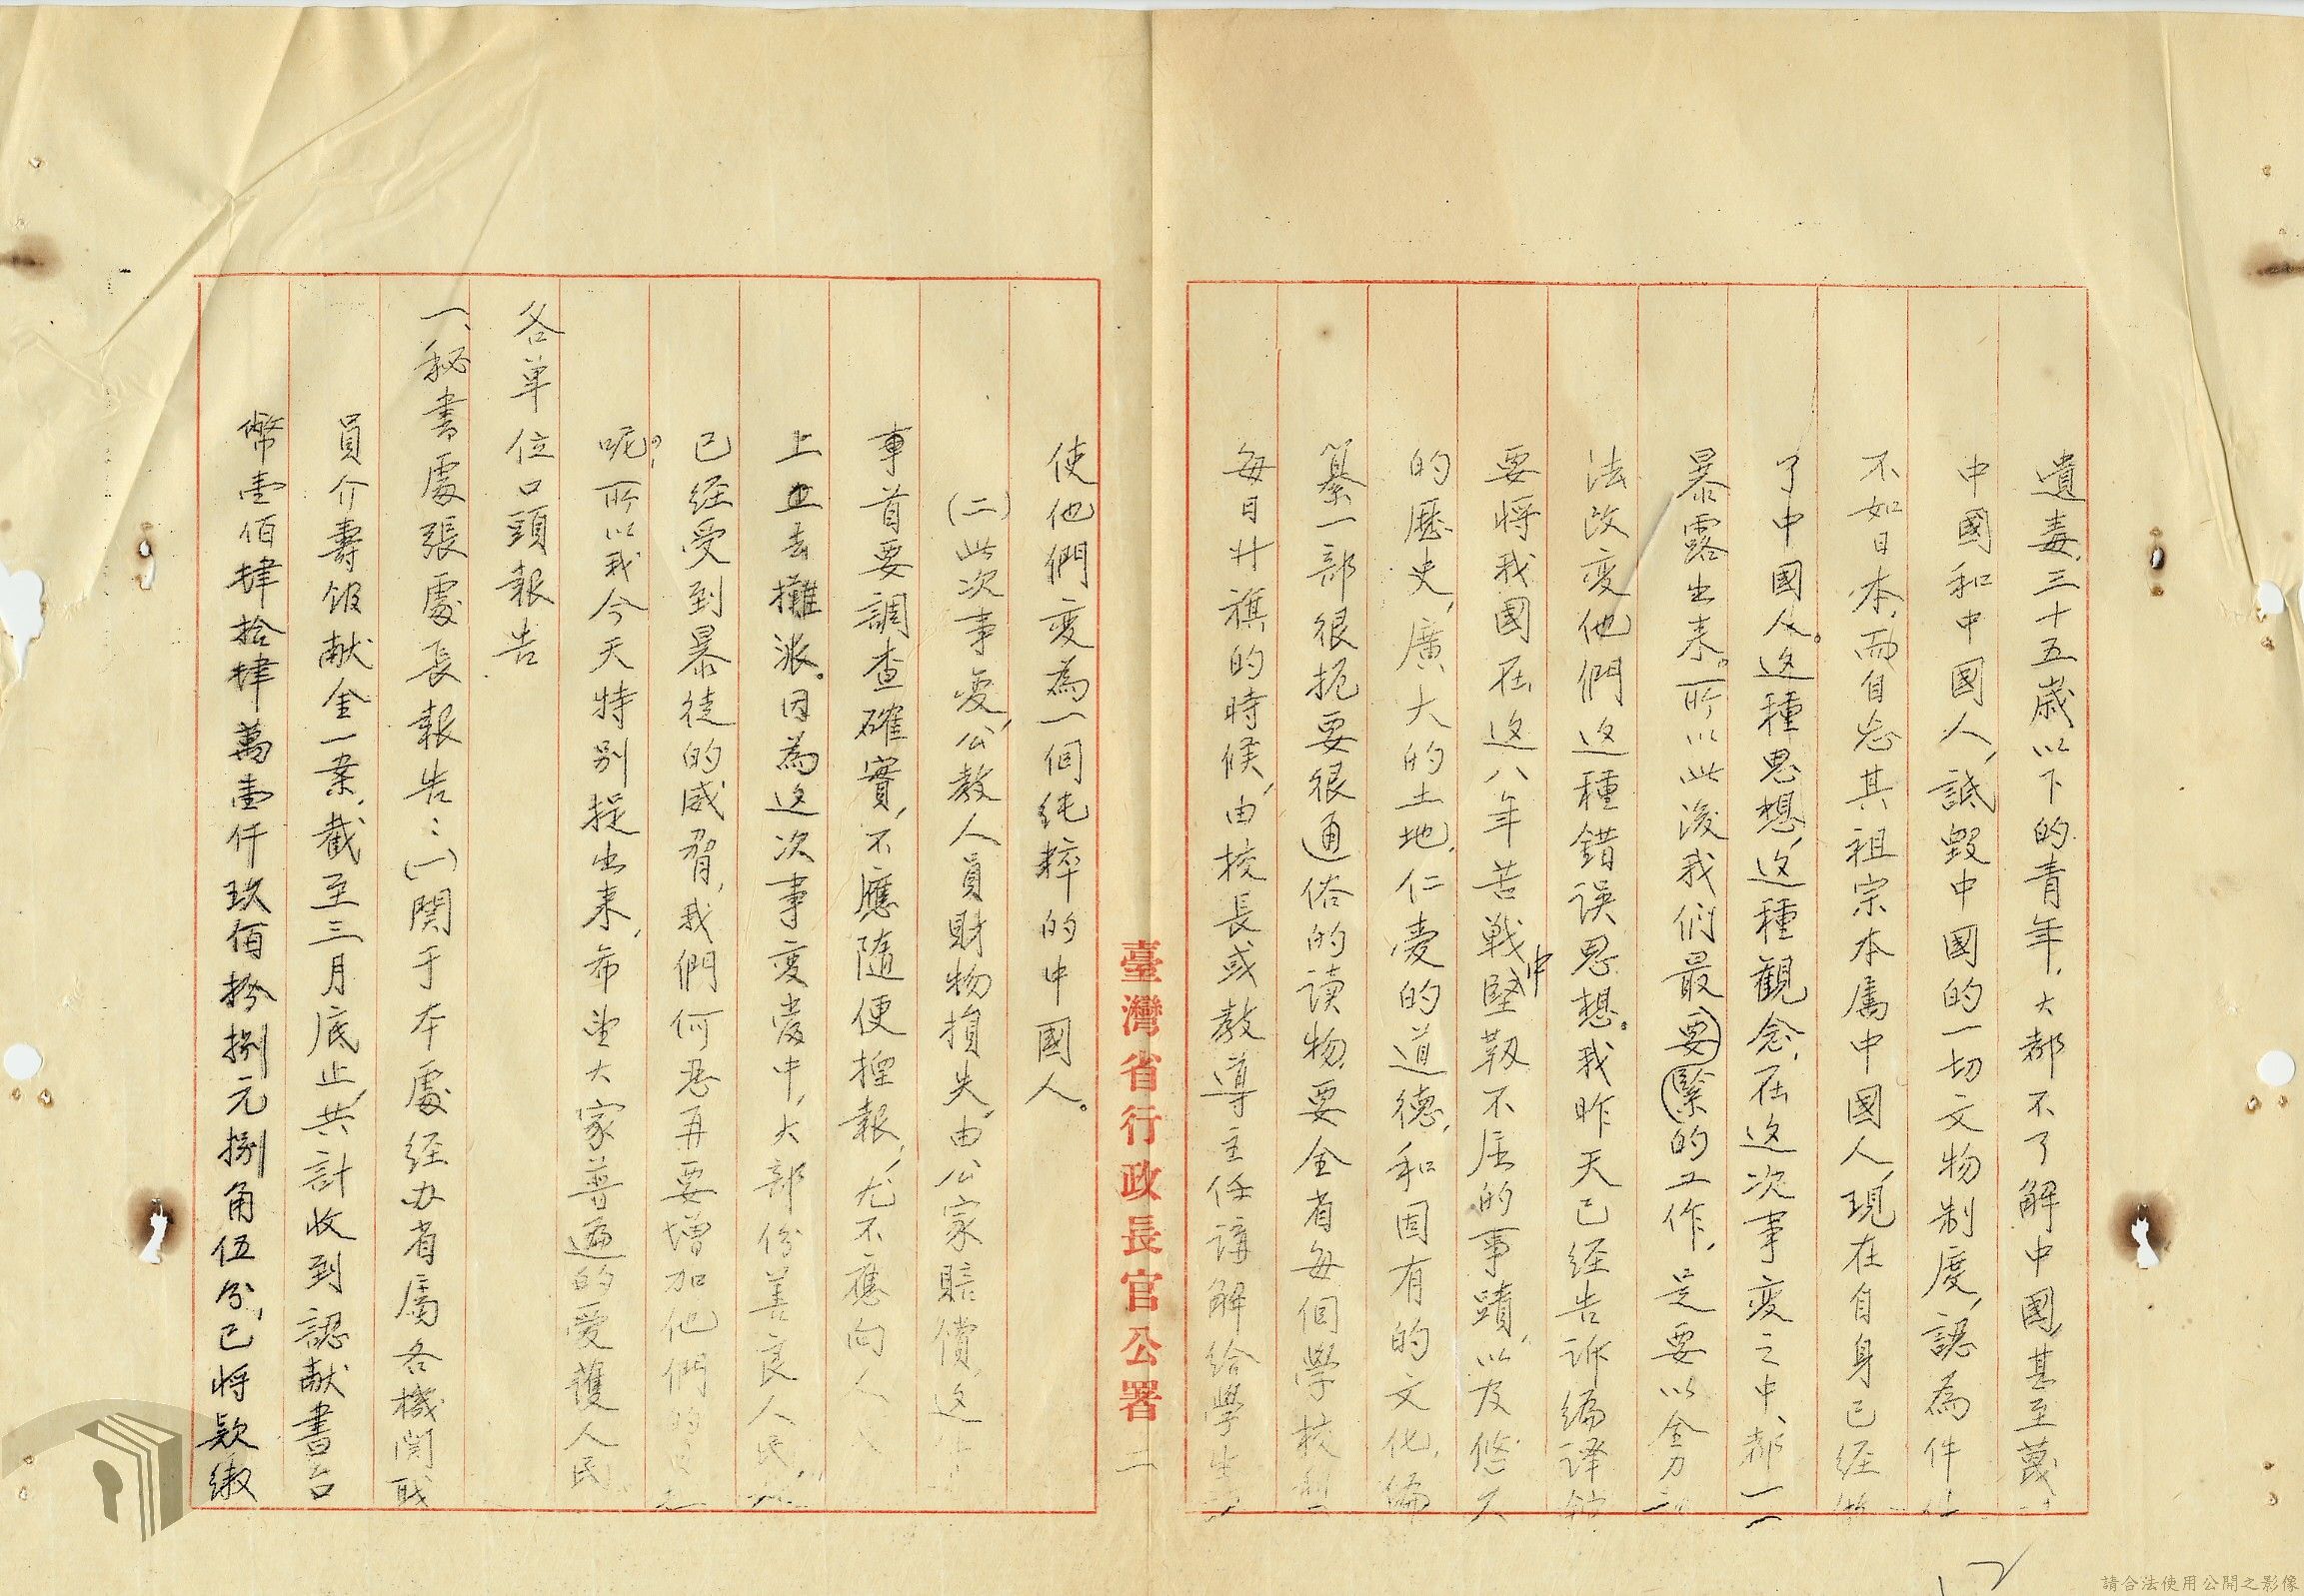 遺毒，三十五歲以下的青年，大都不了解中國，甚至蔑
中國和中國人，詆毀中國的一切文物制度，認為件件
不如日本，而自忘其祖宗本屬中國人，現在自身已經做
了中國人。这種思想，这種観念，在这次事变之中，都一一
暴露出来。所以此後我们最要緊的工作，是要以全力
法改变他們这種錯误思想。我昨天已经告诉编译館
要将我國在这八年苦戰中堅靱不屈的事蹟，以及悠久
的歷史，廣大的土地，仁爱的道德，和固有的文化，编
纂一部很扼要很通俗的读物，要全省每個學校利
每日廾旗的時候，由校長或教導主任講解給學生
臺灣省行政長官公署
二
使他們变為一個纯粹的中國人。
（二）此次事变，公教人員財物損失，由公家賠償，这
事首要調查確實，不應隨便捏報，尤不應向人
上並去攤派。因為这次事变當中，大部份善良人民，
已经受到暴徒的威脅，我們何忍再要增加他們的
呢？所以我今天特别提出来，希望大家普遍的爱護人民
各单位口頭報告
一、秘書處張處長報告：（一）関于本處经办省屬各機関职
員介壽献金一案，截至三月底止，共計收到認献書台
幣壹佰肆拾肆萬壹仟玖佰拾捌元捌角伍分，已将款繳
請合法使用公開之影像